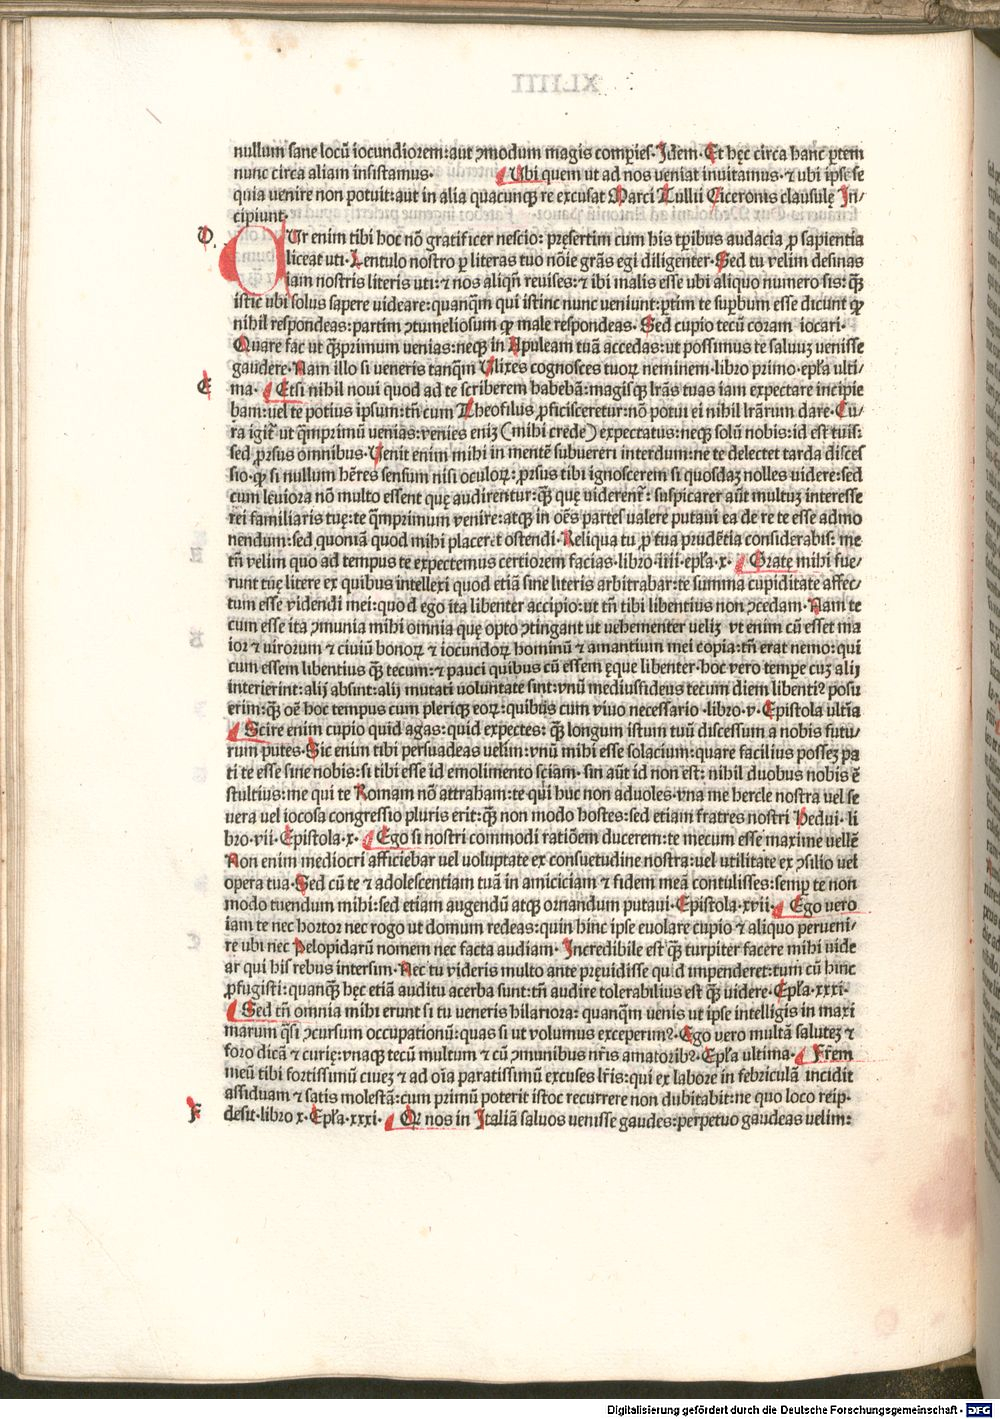 nullum sane locū iocundiorem:aut ꝯmodum magis comꝑies·Idem·Et hęc circa hanc ꝑtem
nunc circa aliam insistamus· Ubi quem ut ad nos veniat inuitamus·⁊ ubi ipse se
quia venire non potuit:aut in alia quacunqꝫ re excusat Marci Tullii Ciceronis clausulę In/
cipiunt·
D·
CUr enim tibi hoc nō gratificer nescio: pręsertim cum his tꝑibus audacia ꝓ sapientia
liceat uti·Lentulo nostro ꝑ literas tuo nōie grās egi diligenter·Sed tu velim desinas
iam nostris literis uti:⁊ nos aliqñ reuises:⁊ ibi malis esse ubi aliquo numero sis: qꝫ
istic ubi solus sapere videare:quanqm̄ qui istinc nunc veniunt:ꝑtim te suꝑbum esse dicunt ꝙ
nihil respondeas:partim ꝯtumeliosum ꝙ male respondeas·Sed cupio tecū coram iocari·
Quare fac ut qꝫprimum venias:neqꝫ in Apuleam tuā accedas:ut possimus te saluuꝫ venisse
gaudere·Nam illo si veneris tanqm̄ Ulixes cognosces tuoꝝ neminem·libro primo·epła ulti/
E
ma· Etsi nihil noui quod ad te scriberem habebā:magisqꝫ lrās tuas iam expectare incipie
bam:uel te potius ipsum:tñ cum Theofilus ꝓficisceretur:nō potui ei nihil lrārum dare·Cu/
ra igit̄ ut qm̄primū venias:venies eniꝫ (mihi crede) expectatus:neqꝫ solū nobis:id est tuis:
sed ꝓrsus omnibus·Uenit enim mihi in mentē subuereri interdum:ne te delectet tarda disces
sio·ꝙ si nullum hēres sensum nisi oculoꝝ:ꝓrsus tibi ignoscerem si quosdaꝫ nolles videre:sed
cum leuiora nō multo essent quę audirentur:qꝫ quę viderent̄: suspicarer aūt multuꝫ interesse
rei familiaris tuę:te qm̄primum venire:atqꝫ in oēs partes ualere putaui ea de re te esse admo
nendum:sed quoniā quod mihi placeret ostendi·Reliqua tu ꝓ tua prudētia considerabis: me
tñ velim quo ad tempus te expectemus certiorem facias·libro·iiii·epła·x· Grate mihi fue/
runt tuę litere ex quibus intellexi quod etiā sine literis arbitrabar:te summa cupiditate affec/
tum esse videndi mei:quod ego ita libenter accipio:ut tñ tibi libentius non ꝯcedam·Nam te
cum esse ita ꝯmunia mihi omnia quę opto ꝯtingant ut uehementer ueliꝫ vt enim cū esset ma
ior ⁊ uirorum ⁊ ciuiū bonoꝝ ⁊ iocundoꝝ hominū ⁊ amantium mei copia:tñ erat nemo:qui
cum essem libentius qꝫ tecum:⁊ pauci quibus cū essem ęque libenter·hoc vero tempe cuꝫ alij
interierint:alij absint:alij mutati uoluntate sint:vnū mediusfideus tecum diem libenti⁹ posu
erim:qꝫ oē hoc tempus cum plerisqꝫ eoꝝ:quibus cum viuo necessario·libro·v·Epistola ultīa
Scire enim cupio quid agas:quid expectes: qꝫ longum istum tuū discessum a nobis futu/
rum putes·Sic enim tibi persuadeas uelim:vnū mihi esse solacium:quare facilius posseꝫ pa
ti te esse sine nobis:si tibi esse id emolimento sciam·sin aūt id non est: nihil duobus nobis ē
stultius:me qui te Romam nō attraham:te qui huc non aduoles·vna me hercle nostra vel se
uera vel iocosa congressio pluris erit:qꝫ non modo hostes:sed etiam fratres nostri Hedui·li
bro·vii·Epistola·x· Ego si nostri commodi ratiōem ducerem:te mecum esse maxime vellē
Non enim mediocri afficiebar uel voluptate ex consuetudine nostra:uel utilitate ex ꝯsilio uel
opera tua·Sed cū te ⁊ adolescentiam tuā in amiciciam ⁊ fidem meā contulisses:semꝑ te non
modo tuendum mihi:sed etiam augendū atqꝫ ornandum putaui·Epistola·xvii· Ego vero
iam te nec hortor nec rogo ut domum redeas:quin hinc ipse euolare cupio ⁊ aliquo perueni/
re ubi nec Pelopidarū nomem nec facta audiam·Incredibile est qꝫ turpiter facere mihi uide
ar qui his rebus intersim·Nec tu videris multo ante pręuidisse quid impenderet:tum cū hinc
ꝓfugisti:quanqꝫ hęc etiā auditu acerba sunt:tñ audire tolerabilius est qꝫ videre·Epła·xxxi·
Sed tñ omnia mihi erunt si tu veneris hilariora: quanqm̄ venis ut ipse intelligis in maxi
marum qsi ꝯcursum occupationū:quas si ut volumus exceperim⁹·Ego vero multā saluteꝫ ⁊
foro dicā ⁊ curię:vnaqꝫ tecū multum ⁊ cū ꝯmunibus nr̄is amatorib⁹·Epła ultima· Fr̄em
meū tibi fortissimū ciueꝫ ⁊ ad oīa paratissimū excuses lr̄is:qui ex labore in febriculā incidit
assiduam ⁊ satis molestā:cum primū poterit istoc recurrere non dubitabit:ne quo loco reip·
F
desit·libro x·Epła·xxxi· Qꝛ nos in Italiā saluos venisse gaudes:perpetuo gaudeas uelim:
Digitalisierung gefördert durch die Deutsche Forschungsgemeinschaft - DFG